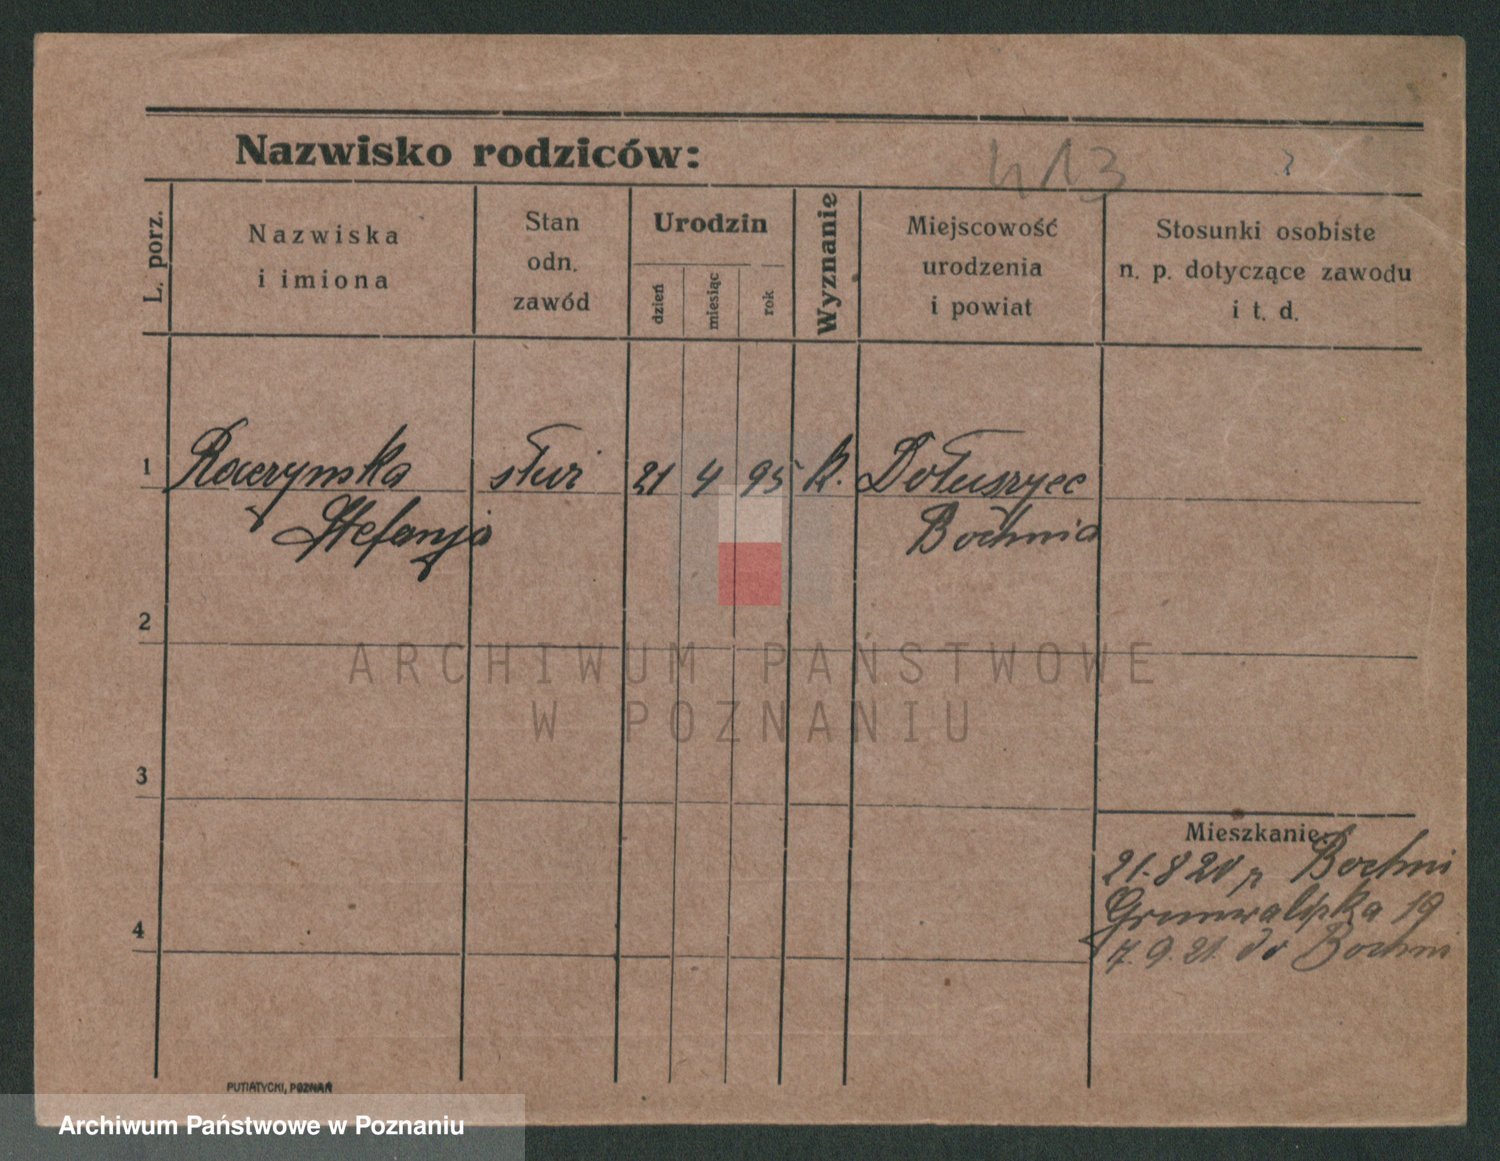 Nazwisko rodziców:
413
?
L. porz.
Nazwiska
i imiona
Stan
odn.
zawód
Urodzin
dzień
miesiąc
rok
Wyznanie
Miejscowość
urodzenia
i powiat
Stosunki osobiste
n. p. dotyczące zawodu
i t. d.
1 Raczynska służ 21 4 95 k. Dołuszyce
Stefanja Bochnia
2
ARCHIWUM PAŃSTWOWE
W POZNANIU
3
Mieszkanie:
21.8 20 z Bochni
Grunwaldzka 19
7.9.21 do Bochni
4
PUTIATYCKI, POZNAŃ
Archiwum Państwowe w Poznaniu